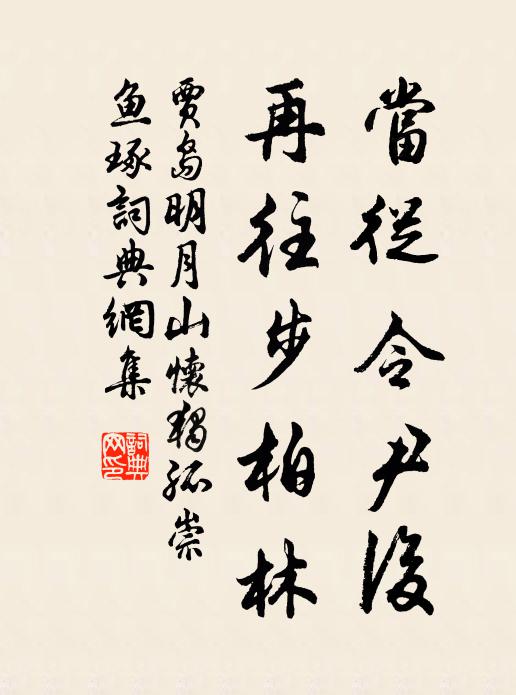 當從令尹後
再往步柏林
賈島明月山懷獨孤崇
魚琢詞典網集
詞典網印